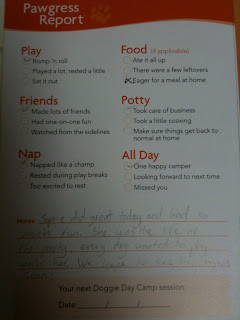 Pawgress
Report
Play
Romp 'n roll
Played a lot, rested a little
Sat it out
Food (if applicable)
Ate it all up
There were a few leftovers
Eager for a meal at home
Friends
Made lots of friends
Had one-on-one fun
Watched from the sidelines
Potty
Took care of business
Took a little coaxing
Make sure things get back to
normal at home
Nap
Napped like a champ
Rested during play breaks
Too excited to rest
All Day
One happy camper
Looking forward to next time
Missed you
Notes: did great today and had so
much fun. She was the life of
the party, every dog wanted to play
with her. We hope to see
soon!
Your next Doggie Day Camp session:
Date: / /